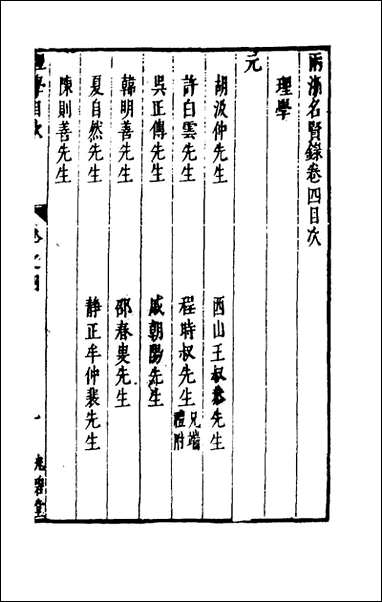 兩浙名賢錄卷四目次
理學
元
胡汲仲先生
西山王叔先生
許白雲先生
程時叔先生兄端禮附
吳正傳先生
戚朝陽先生
韓明善先生
邵春叟先生
夏自然先生
静正牟仲裴先生
陳則善先生
理學目次
卷之四
一
光碧堂